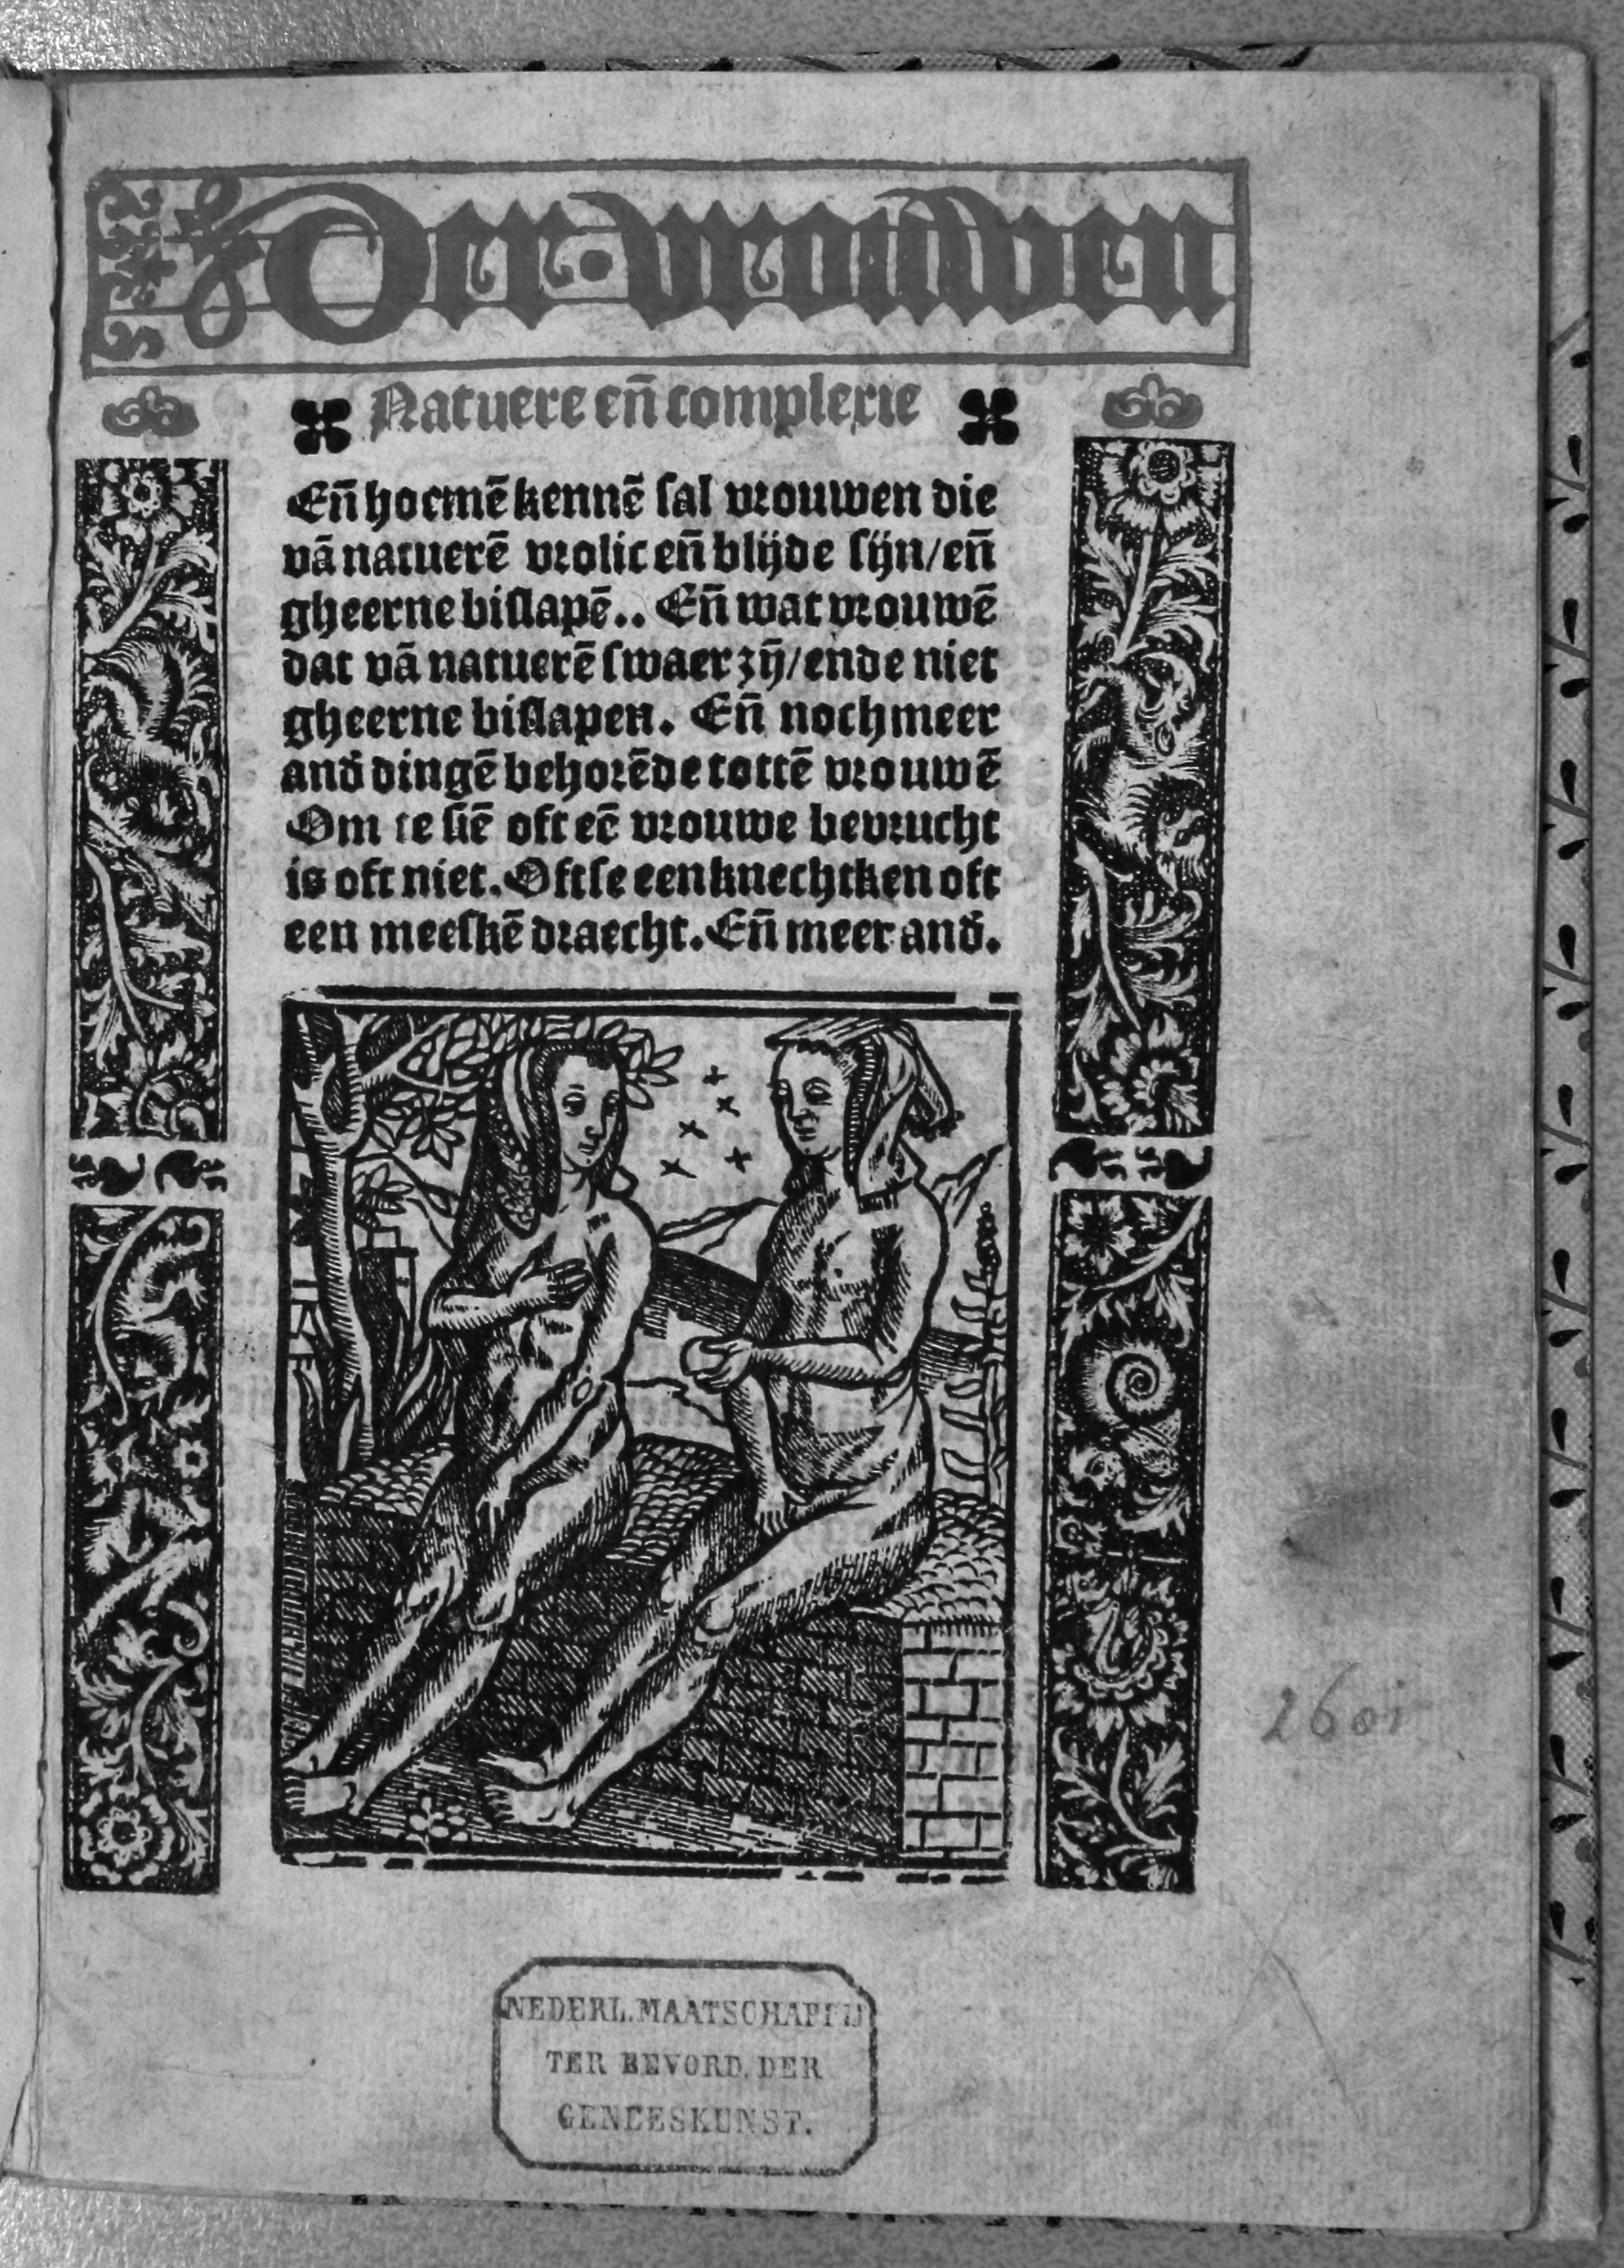 Der vrouwen
Natuere eñ complexie
Eñ hoemē kennē sal vrouwen die
vā natuerē vrolic eñ blijde sijn/eñ
gheerne bislapē.. Eñ wat vrouwē
dat vā natuerē swaer zÿ/ende niet
gheerne bislapen. Eñ noch meer
and̉ dingē behorēde tottē vrouwē
Om te siē oft eē vrouwe bevrucht
is oft niet. Oft se een knechtken oft
een meeskē draecht. Eñ meer and̉.
2601
NEDERL. MAATSCHAPPIJ
TER BEVORD. DER
GENEESKUNST.